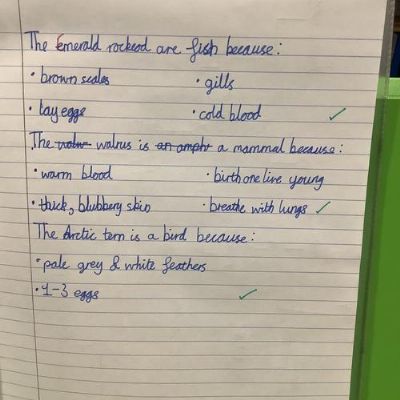 The Emerald rockcod are fish because:
• brown scales • gills
• lay eggs • cold blood
The walrus is an amphi a mammal because:
• warm blood • birth one live young
• thick, blubbery skin • breathe with lungs
The Arctic tern is a bird because:
• pale grey & white feathers
• 1-3 eggs